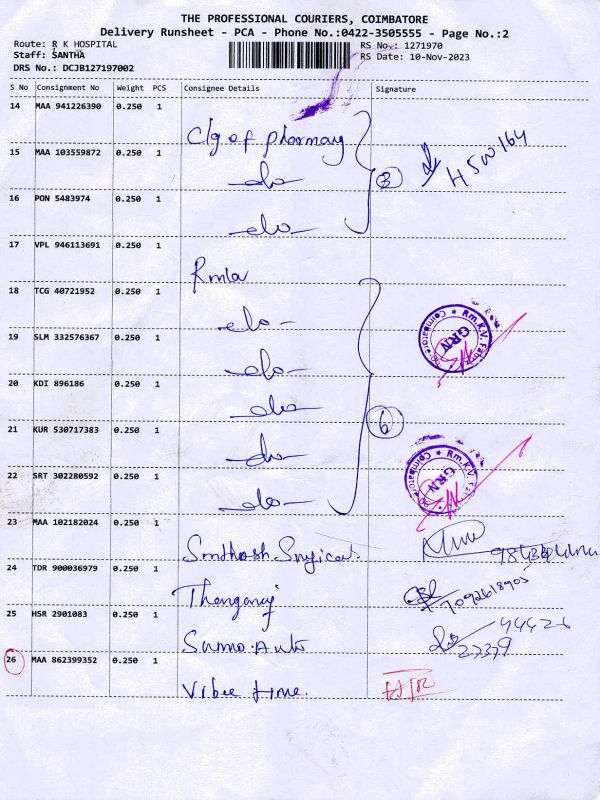 THE PROFESSIONAL COURIERS, COIMBATORE
Delivery Runsheet - PCA - Phone No.:0422-3505555 - Page No.:2
Route: R K HOSPITAL
Staff: SANTHA
DRS No.: DCJB127197002
RS No.: 1271970
RS Date: 10-Nov-2023
S No Consignment No Weight PCS Consignee Details Signature
14 MAA 941226390 0.250 1
Clg of pharmacy
15 MAA 103559872 0.250 1
-do-
3
H500164
16 PON 5483974 0.250 1
-do-
17 VPL 946113691 0.250 1
Rmla
18 TCG 40721952 0.250 1
-do-
Rm.K.V. GRN Coimbatore
19 SLM 332576367 0.250 1
-do-
20 KDI 896186 0.250 1
-do-
6
21 KUR 530717383 0.250 1
-do-
Rm.K.V. GRN Coimbatore
22 SRT 302280592 0.250 1
-do-
23 MAA 102182024 0.250 1
Santhosh Surgicals
24 TDR 900036979 0.250 1
Thangaraj
7092618905
25 HSR 2901083 0.250 1
Sumo Auto
94426
27379
26 MAA 862399352 0.250 1
Vibee time